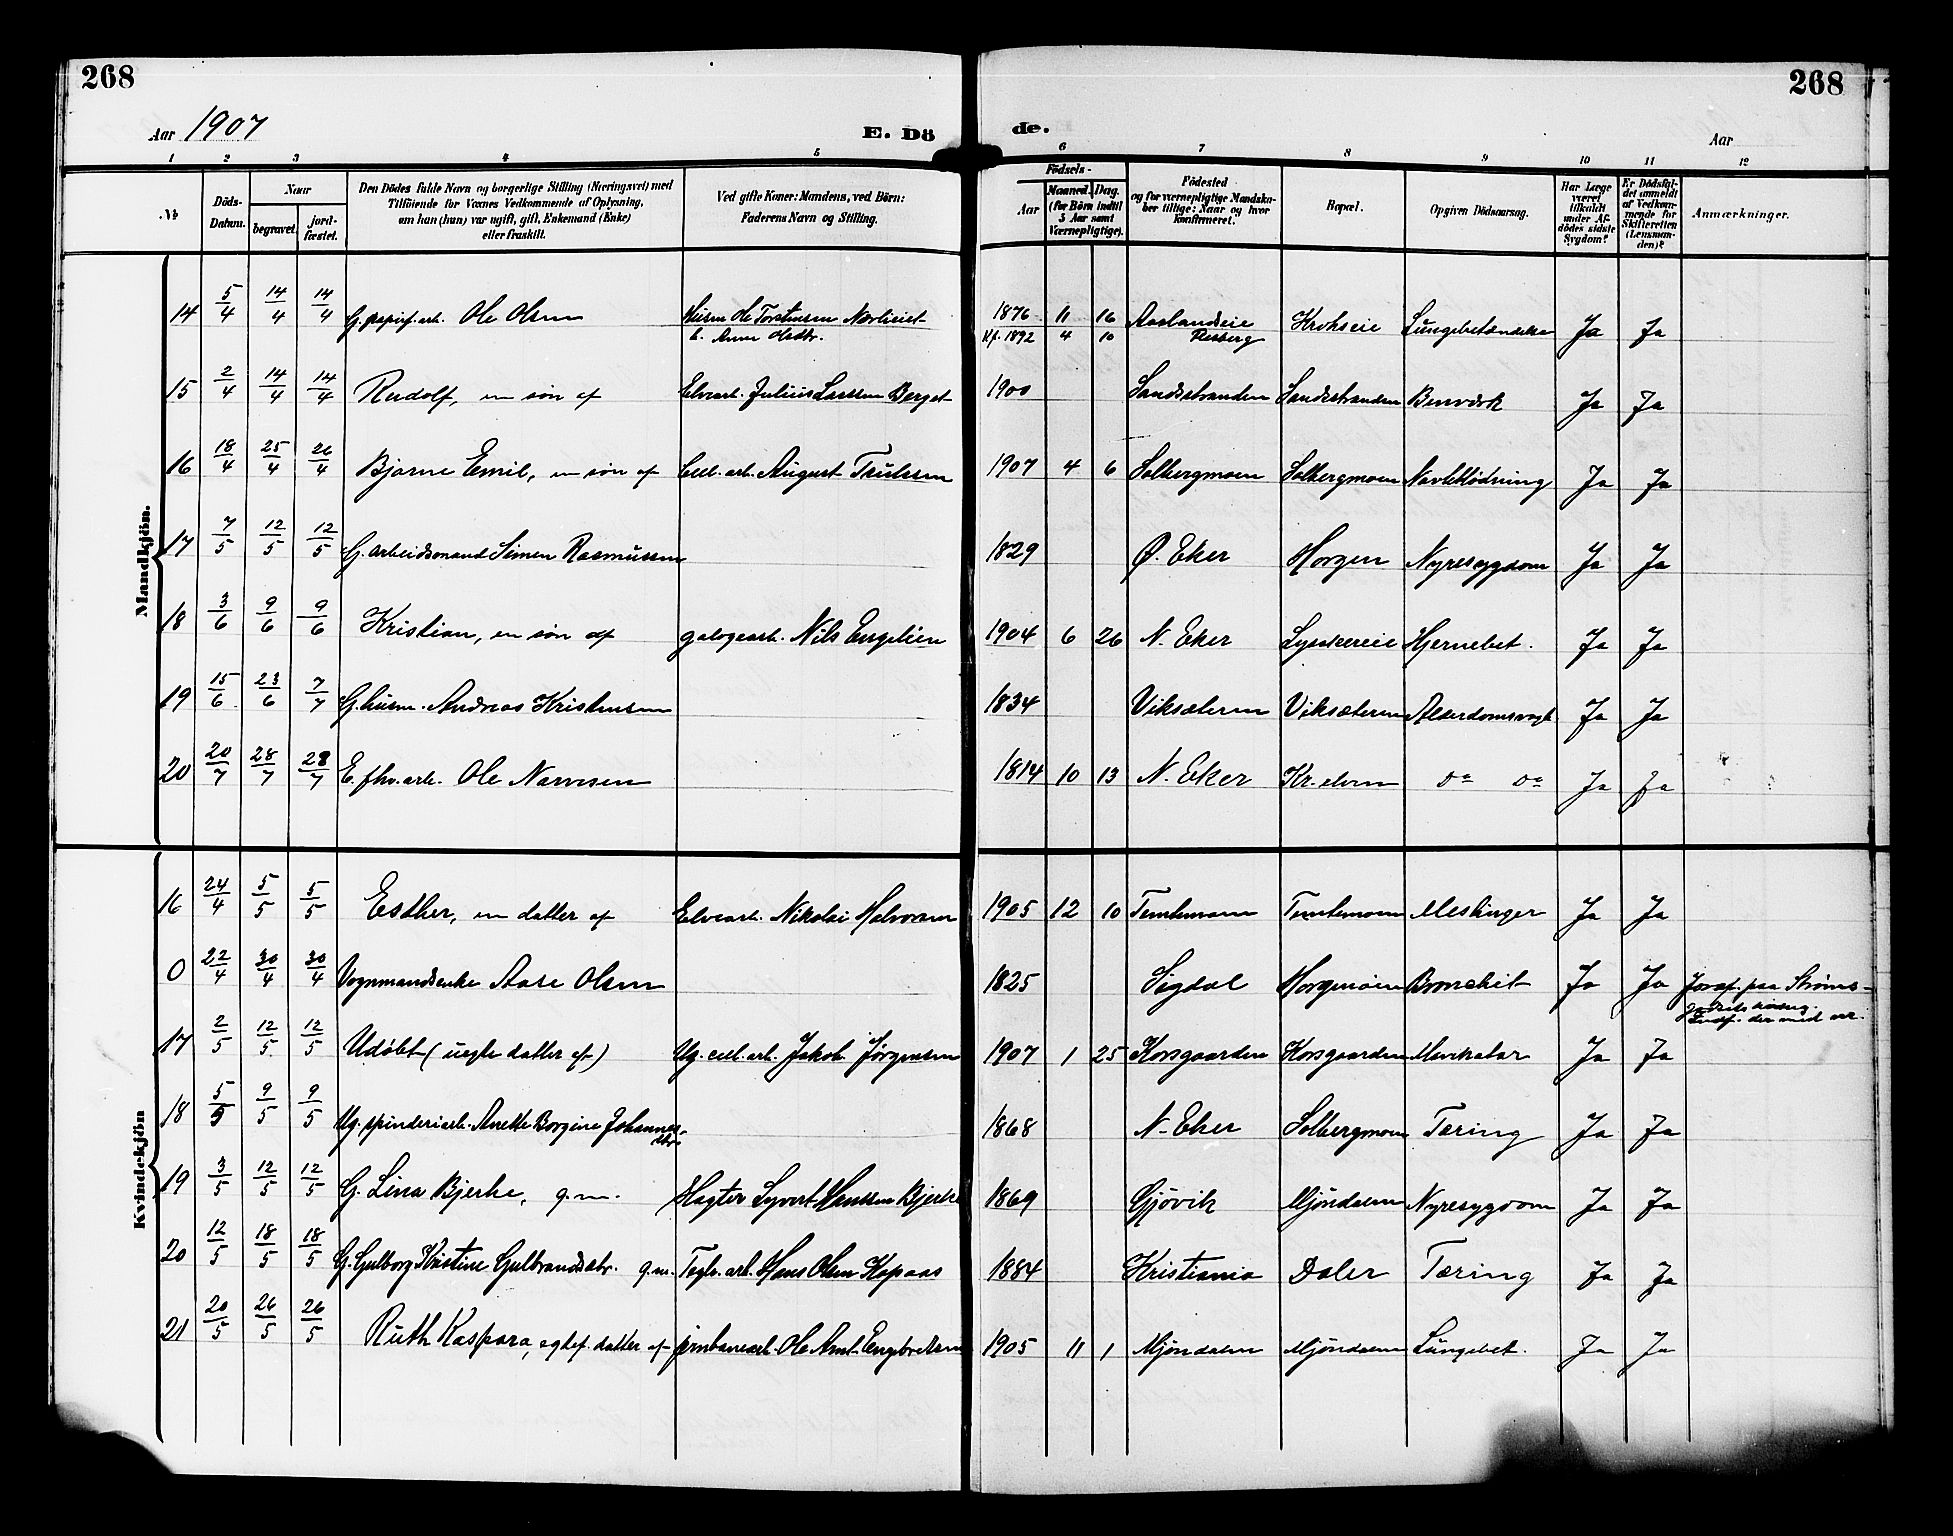 268
268
Aar 1907
E. Dö
de.
Aar
1 2 3 4 5 6 7 8 9 10 11 12
№
Döds-Datum.
Naar
begravet.
jord-fæstet.
Den Dödes fulde Navn og borgerlige Stilling (Næringsvei) med
Tilföiende for Voxnes Vedkommende af Oplysning,
om han (hun) var ugift, gift, Enkemand (Enke)
eller fraskilt.
Ved gifte Koner: Mandens, ved Börn:
Faderens Navn og Stilling.
Födsels-
Aar
Maaned. Dag.
(for Börn indtil
3 Aar samt
Værnepligtige).
Födested
og for værnepligtige Mandska-
ber tillige: Naar og hvor
konfirmeret.
Bopæl.
Opgiven Dödsaarsag.
Har Læge
været
tilkaldt
under Af-
dödes sidste
Sygdom?
Er Dödsfal-
det anmeldt
af Vedkom-
mende for
Skifteretten
(Lensman-
den)?
Anmærkninger.
Mandkjön.
14 5/4 14/4 14/4 G. papirf. arb. Ole Olsen Husm. Ole Torstensen 1876 11 16 Aaslandseie Krokseie Lungebetændelse Ja Ja
Kf. 1892 4 10
15 2/4 14/4 14/4 Rudolf, en søn af Elvearb. Julius Larssen Berget 1900 Sandsstranden Sandsstranden Ja Ja
16 18/4 25/4 26/4 Bjarne Emil, en søn af Cell. arb. August Trulssen 1907 4 6 Solbergmoen Solbergmoen Navleblødning Ja Ja
17 7/5 12/5 12/5 G. arbeidsmand Simen Rasmussen 1829 Ø. Eker Horgen Nyresygdom Ja Ja
18 3/6 9/6 9/6 Kristian, en søn af galogearb. Nils Engelien 1904 6 26 N. Eker Hjernebet. Ja Ja
19 15/6 23/6 7/7 G. husm. Andreas Kristensen 1834 Viksæteren Viksæteren Alderdomssvagh. Ja Ja
20 20/7 28/7 28/7 E. fhv. arb. Ole Narvesen 1814 10 13 N. Eker Kr. elven do do Ja Ja
Kvindekjön
16 24/4 5/5 5/5 Esther, en datter af Elvearb. Nikolai Halvorsen 1905 12 10 Meslinger Ja Ja
0 22/4 30/4 30/4 Vognmandsenke Aase Olsen 1825 Sigdal Horgenmoen Bronchit Ja Ja Jordf. paa Strøms-
17 2/5 12/5 12/5 Udöbt (uegte datter af) Ug. cell. arb. Jakob Jørgensen 1907 1 25 Korsgaarden Korsgaarden Mavekatar Ja Ja
18 5/5 9/5 9/5 Ug. spinderiarb. Anette Borgine Johannes-
dtr. 1868 N. Eker Solbergmoen Tæring Ja Ja
19 3/5 12/5 12/5 G. Lina Bjerke, g.m. Slagter Syvert Hanssen Bjerke 1869 Gjøvik Mjøndalen Nyresygdom Ja Ja
20 12/5 18/5 18/5 G. Gulborg Kristine Gulbrandsdtr. g.m. Teglv. arb. Hans Olsen Kopaas 1884 Kristiania Daler Tæring Ja Ja
21 20/5 26/5 26/5 Ruth Kaspara, egtef. datter af jernbanearb. Ole Ant. Engebretsen 1905 11 1 Mjøndalen Mjøndalen Lungebet. Ja Ja